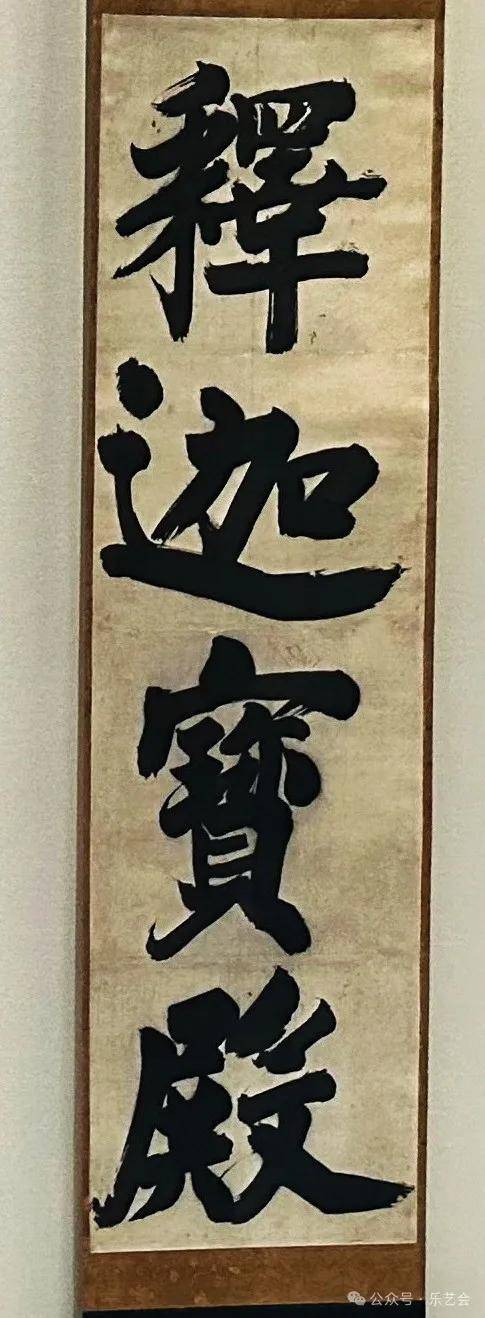 釋迦寶殿
公众号·乐艺会